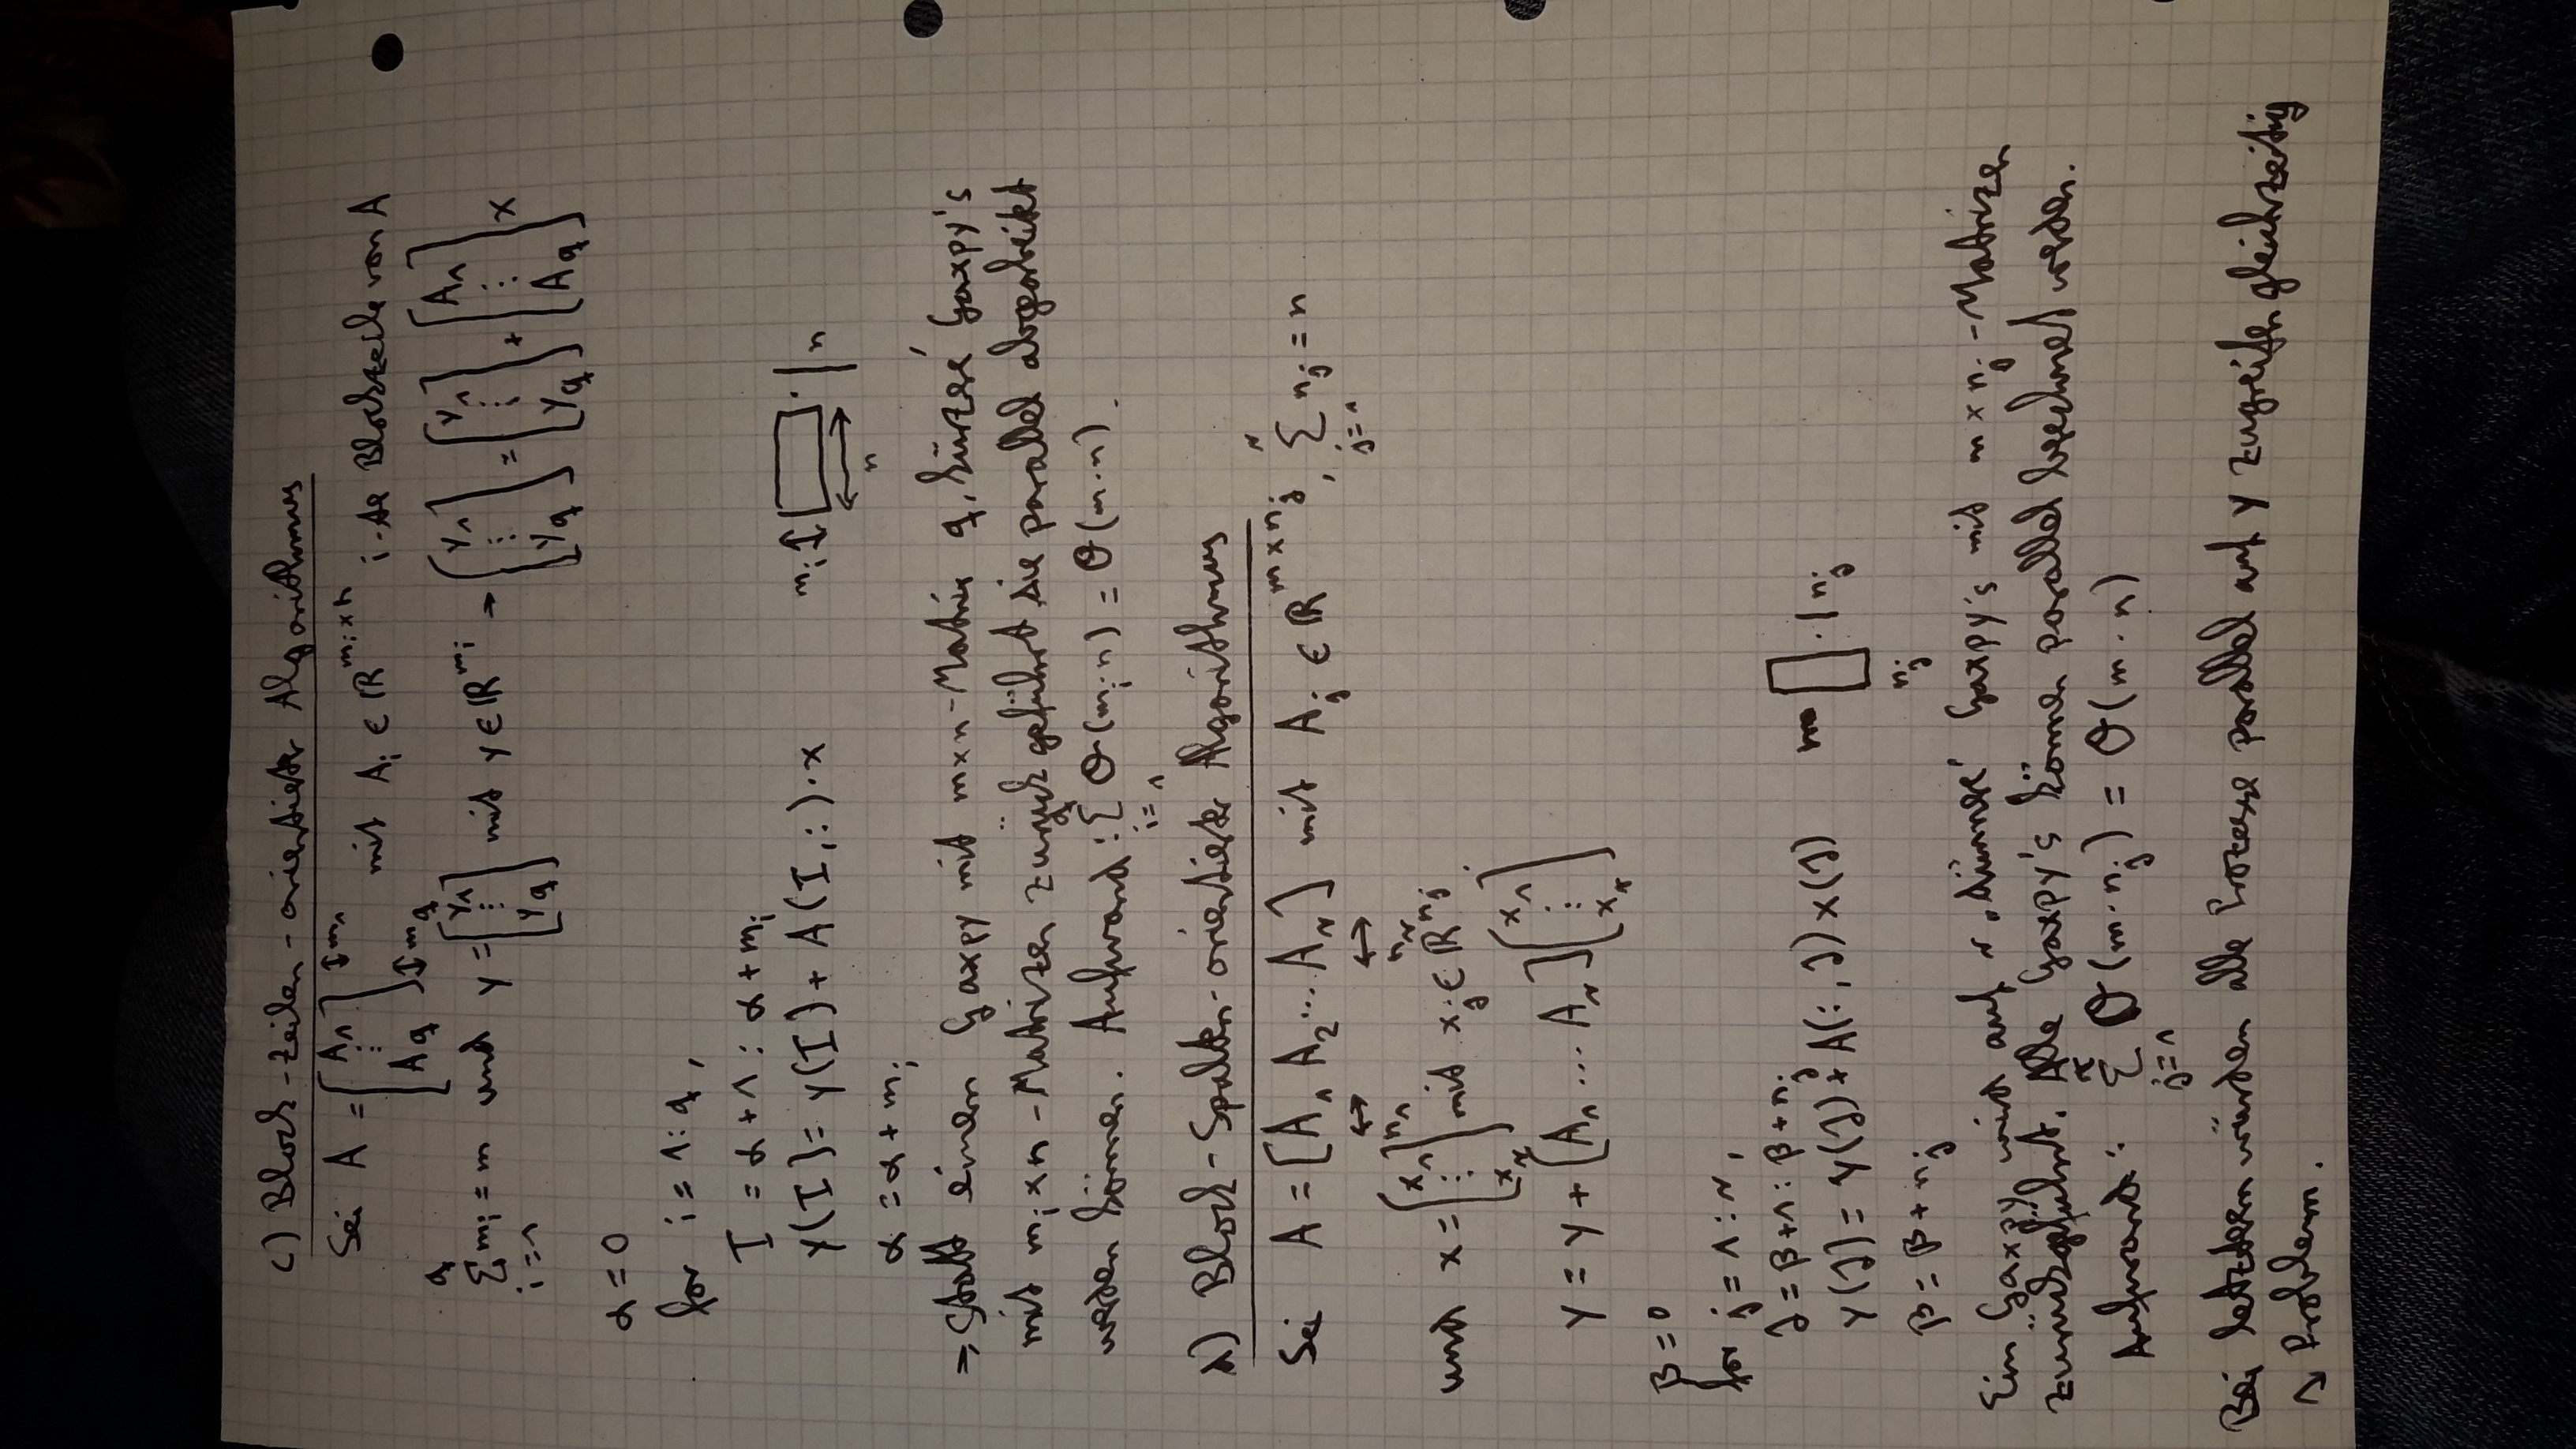 c) Block-Zeilen-orientierter Algorithmus
Sei A = [A₁ ⋮ A_q] ↕m₁ ↕m_q mit A_i ∈ ℝ^{m_i×n} i-te Blockzeile von A
∑_{i=1}^{q} m_i = m und y = [y₁ ⋮ y_q] mit y ∈ ℝ^{m_i} → [y₁ ⋮ y_q] = [y₁ ⋮ y_q] + [A₁ ⋮ A_q] x
α = 0
for i = 1:q,
I = α+1 : α+m_i
y(I) = y(I) + A(I,:)·x m_i ↕ · | n
n
α = α + m_i
⇒ Statt einen Gaxpy mit m×n-Matrix q ,kürzere' Gaxpy's
mit m_i×n-Matrizen zurückgeführt die parallel abgearbeitet
werden können. Aufwand: ∑_{i=1}^{q} O(m_i·n) = O(m·n).
d) Block-Spalten-orientierter Algorithmus
Sei A = [A₁ A₂ ... A_r] mit A_j ∈ ℝ^{m×n_j}, ∑_{j=1}^{r} n_j = n
↔ ↔
n₁ n_r
und x = [x₁ ⋮ x_r] mit x_j ∈ ℝ^{n_j}.
y = y + [A₁ ... A_r] [x₁ ⋮ x_r]
β = 0
for j = 1:r,
J = β+1 : β+n_j
y(J) = y(J) + A(:,J) x(J) m · | n_j
n_j
β = β + n_j
Ein Gaxpy wird auf r ,dünnere' Gaxpy's mit m×n_j-Matrizen
zurückgeführt. Alle Gaxpy's können parallel berechnet werden.
Aufwand: ∑_{j=1}^{r} O(m·n_j) = O(m·n)
Bei letzterem würden alle Prozesse parallel auf y zugreifen gleichzeitig
→ Problem.